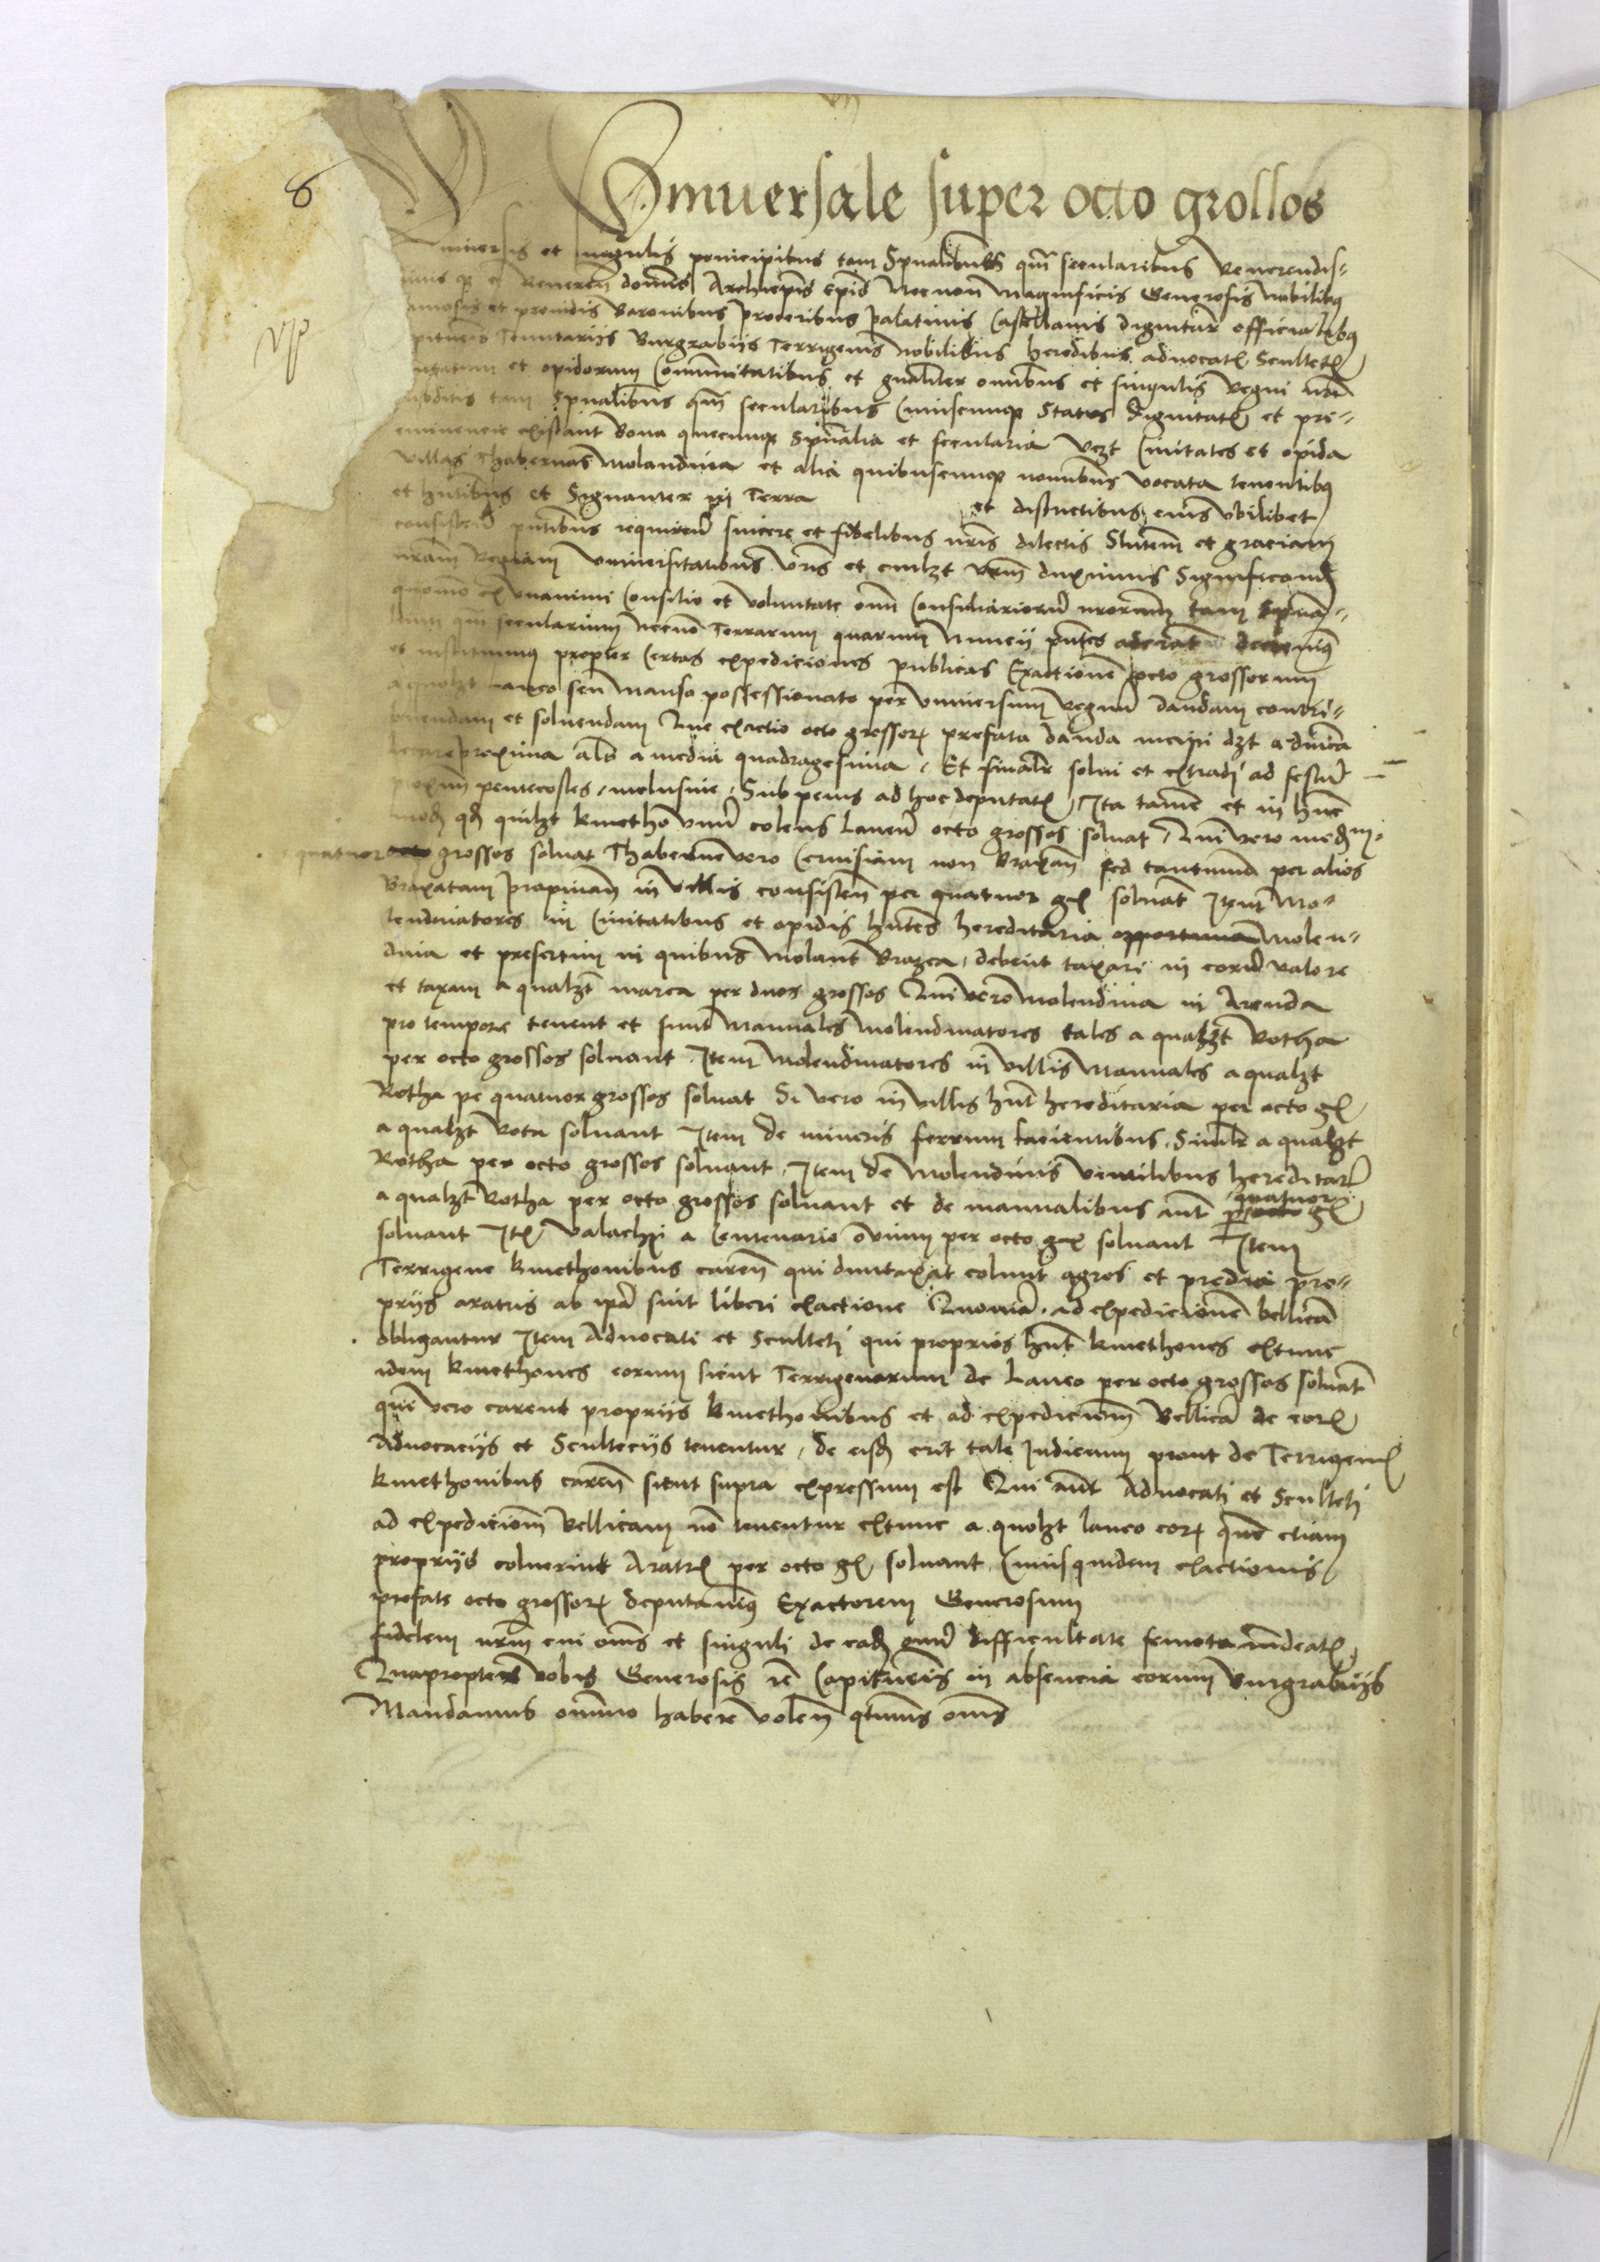 8
Vniuersale super octo grossos
vniuersis et singulis principibus tam Spualibus qm secularibus Reuerendis-
simis et Reueren dominis Archiepis Epis Necnon magnificis Generosis nobilibus
famosis et prouidis Baronibus Proceribus Palatinis Castellanis dignitar officialibus
Tenutarijs Burgrabijs Terrigenis nobilibus heredibus aduocat Scultet
et opidorum Communitatibus et gnaliter omnibus et singulis regni nri
subditis tam Spualibus qm secularibus Cuiuscunque Status dignitatis et pre-
eminencie existant Bona quecunque Spualia et secularia vzt Ciuitates et opida
villas Thabernas Molandina et alia quibuscunque nominibus vocata tenentibus
et hntibus et Signanter in Terra et districtibus eius vbilibet
consisten pntibus requiren sincere et fidelibus nris dilectis Salutem et graciam
nram Regiam vniuersitatibus vris et cuilzt vrm duximus Significand
quomo ex vnanimi Consilio et voluntate omn Consiliariorum nrorum tam Spua-
lium qm secularium necno Terrarum quarum Nuncij pntes aderant decreuimus
et instituimus propter Certas expediciones publicas Exactionem octo grossorum
a quolzt laneo seu Manso possessionato per vniuersum regnum dandam contri-
buendam et soluendam Que exactio octo grossor prefata danda incipi dzt a dnica
Letare proxima als a media quadragesima. Et finalr solui et extradi ad festum
proximum pentecostes inclusiue, Sub penis ad hoc deputatis Ita tamen et in hunc
modum qd quilzt kmetho vnum colens Laneum octo grossos soluat, Qui vero medium
quatuor octo grossos soluat Thaberne vero Ceruisiam non Braxan sed tantumd per alios
Braxatam propinan in villis consisten per quatuor gs soluat Item Mo-
lendinatores in Ciuitatibus et opidis hntes hereditaria opportuna Molen-
dina et presertim in quibus Molant Brazea, debent taxari in eorum valore
et taxam a qualzt marca per duos grossos Qui vero Molendina in Arenda
pro tempore tenent et sunt Manuales Molendinatores tales a qualzt Rotha
per octo grossos soluant. Item Molendinatores in villis Manuales a qualzt
Rotha pe quatuor grossos soluat Si vero in villis hnt hereditaria per octo gs
a qualzt Rota soluant Item de mineris ferrum facientibus Similr a qualzt
Rotha per octo grossos soluant, Item de Molendinis ventilibus hereditar
a qualzt Rotha per octo grossos soluant et de manualibus aut quatuor per octo gs
soluant Ite Valachi a Centenario ouium per octo gs soluant Item
Terrigene kmethonibus caren qui duntaxat colunt agros et predia pro-
prijs aratris ab ipa sint liberi exactione Quonia ad expedicionem bellica
obligantur Item Aduocati et Sculteti qui proprios hnt kmethones extunc
idem kmethones eorum sicut Terrigenarum de Laneo per octo grossos soluat
qui vero carent proprijs kmethonibus et ad expedicionem Bellica de eor
Aduocacijs et Scultecijs tenentur, de eisd erit tale Iudicium prout de Terrigenis
kmethonibus caren sicut supra expressum est Qui aut Aduocati et Sculteti
ad expedicionem Bellicam no tenentur extunc a quolzt laneo eor que etiam
proprijs coluerint Aratris per octo gs soluant Cuiusquidem exactionis
prefate octo grossor deputauimus Exactorem Generosum
fidelem nrm cui omnes et singuli de ead omni difficultate semota rindeat
Quapropter vobis Generosis ie Capitaneis in absencia eorum Burgrabijs
Mandamus omnino habere volen qtenus omnes